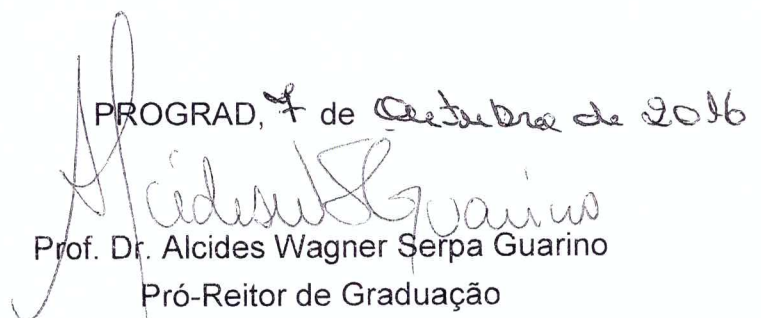 PROGRAD, 7 de Outubro de 2016
Alcides W S Guarino
Prof. Dr. Alcides Wagner Serpa Guarino
Pró-Reitor de Graduação